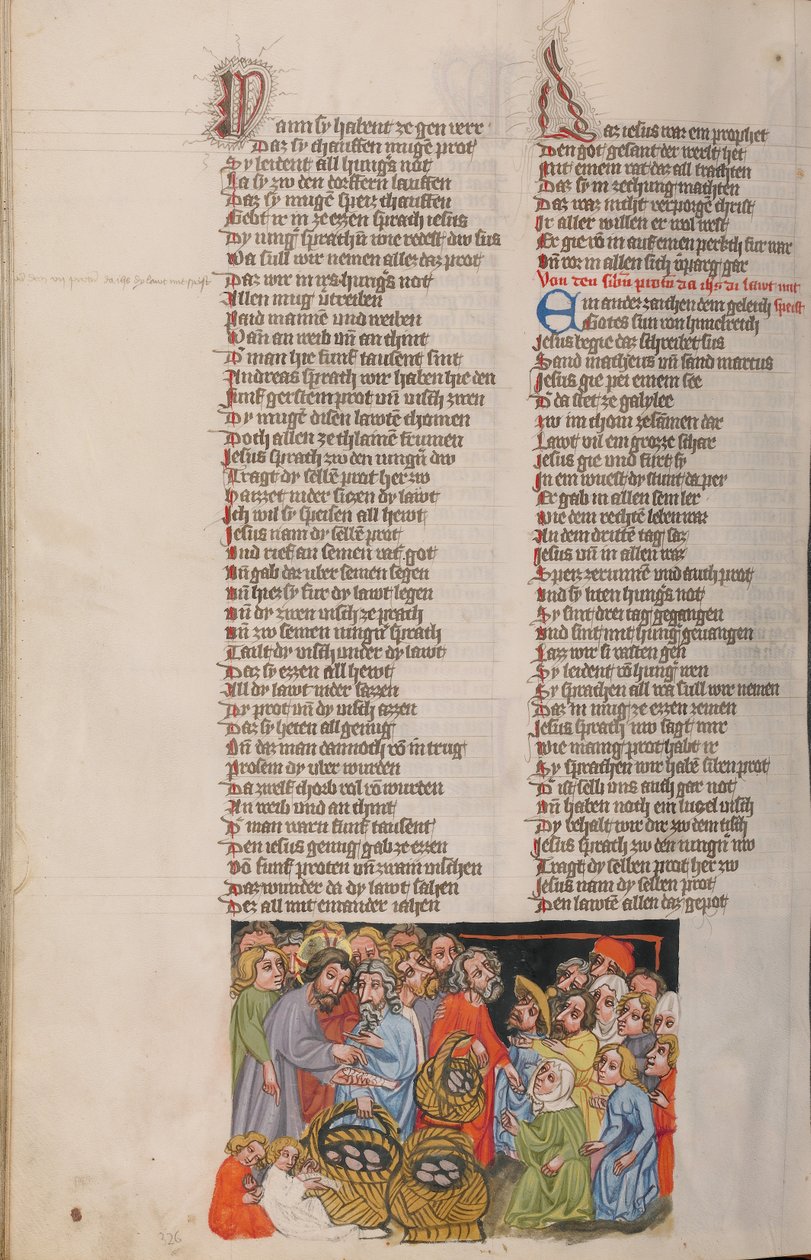 Wann sy habent ze gen verr
Daz sy chauffen mugē prot
Sy leident all hung's not
La sy zw den dorffern lauffen
Daz sy mugē speiz chauffen
Gebt ir in ze ezzen sprach iesus
Dy iung' sprachn̄ wie redest dw sus
Wa sull wir nemen allez daz prot
Daz wir in irs hung's not
Allen mug v̄treiben
Paid mannē und weiben
Wan̄ an weib vn̄ an chint
D' man hie funf tausent sint
Andreas sprach wir haben hie den
Funf gerstein prot vn̄ visch zwen
Dy mugē disen lawtē chomen
Doch allen ze chlainē frumen
Jesus sprach zw den iung'n dw
Tragt dy selbē prot her zw
Haizzet nider siczen dy lawt
Ich wil sy speisen all hewt
Jesus nam dy selbē prot
Und rief an seinen vat' got
Vn̄ gab dar uber seinen segen
Vn̄ hiez sy fur dy lawt legen
Vn̄ dy zwen visch ze prach
Vn̄ zw seinen iung'n sprach
Tailt dy visch under dy lawt
Daz sy ezzen all hewt
All dy lawt nider sazzen
Dy prot vn̄ dy visch azzen
Daz sy heten all genug
Vn̄ daz man dannoch vō in trug
Prosem dy uber wurden
Da zwelf chorb vol vō wurden
An weib und an chint
D' man warn funf tausent
Den iesus genug gab ze ezzen
Vō funf proten vn̄ zwain vischen
Daz wunder da dy lawt sahen
Dez all mit einander iahen
Daz iesus war ein prophet
Den got gesant der werlt het
Mit einem rat daz all trachten
Daz sy in ze chunig machten
Daz waz nicht verporgē christ
Ir aller willen er wol west
Er gie vō in auf einen perch fur war
Vn̄ vor in allen sich v̄parg gar
Von den sibn̄ protn da ihs di lawt mit speist
Ein ander zaichen dem geleich
Gotes sun von himelreich
Jesus begie daz schreibet sus
Sand matheus vn̄ sand marcus
Jesus gie pei einem see
D' da stet ze galylee
Zw im chom zesamen dar
Lawt vil ein grozze schar
Jesus gie und furt sy
In ein wuest dy stunt da per
Er gab in allen sein ler
Wie dem rechtē leben war
An dem drittē tag saz
Jesus vn̄ in allen waz
Speiz zerunnē und auch prot
Und sy liten hung's not
Sy sint drei tag gegangen
Und sint mit hung' geuangen
Lazz wir si vasten gen
Sy leident vō hung' wen
Sy sprachen all wa sull wir nemen
Daz in mug ze ezzen zemen
Jesus sprach nw sagt mir
Wie manig prot habt ir
Sy sprachen wir habē siben prot
D' ist selb uns auch gar not
Vn̄ haben noch ein luczel visch
Dy behalt wir dir zw dem tisch
Jesus sprach zw den iung'n nw
Tragt dy selben prot her zw
Jesus nam dy selben prot
Den lawtē allen daz gepot
226